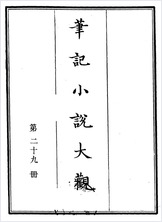 筆記小說大觀
第二十九冊